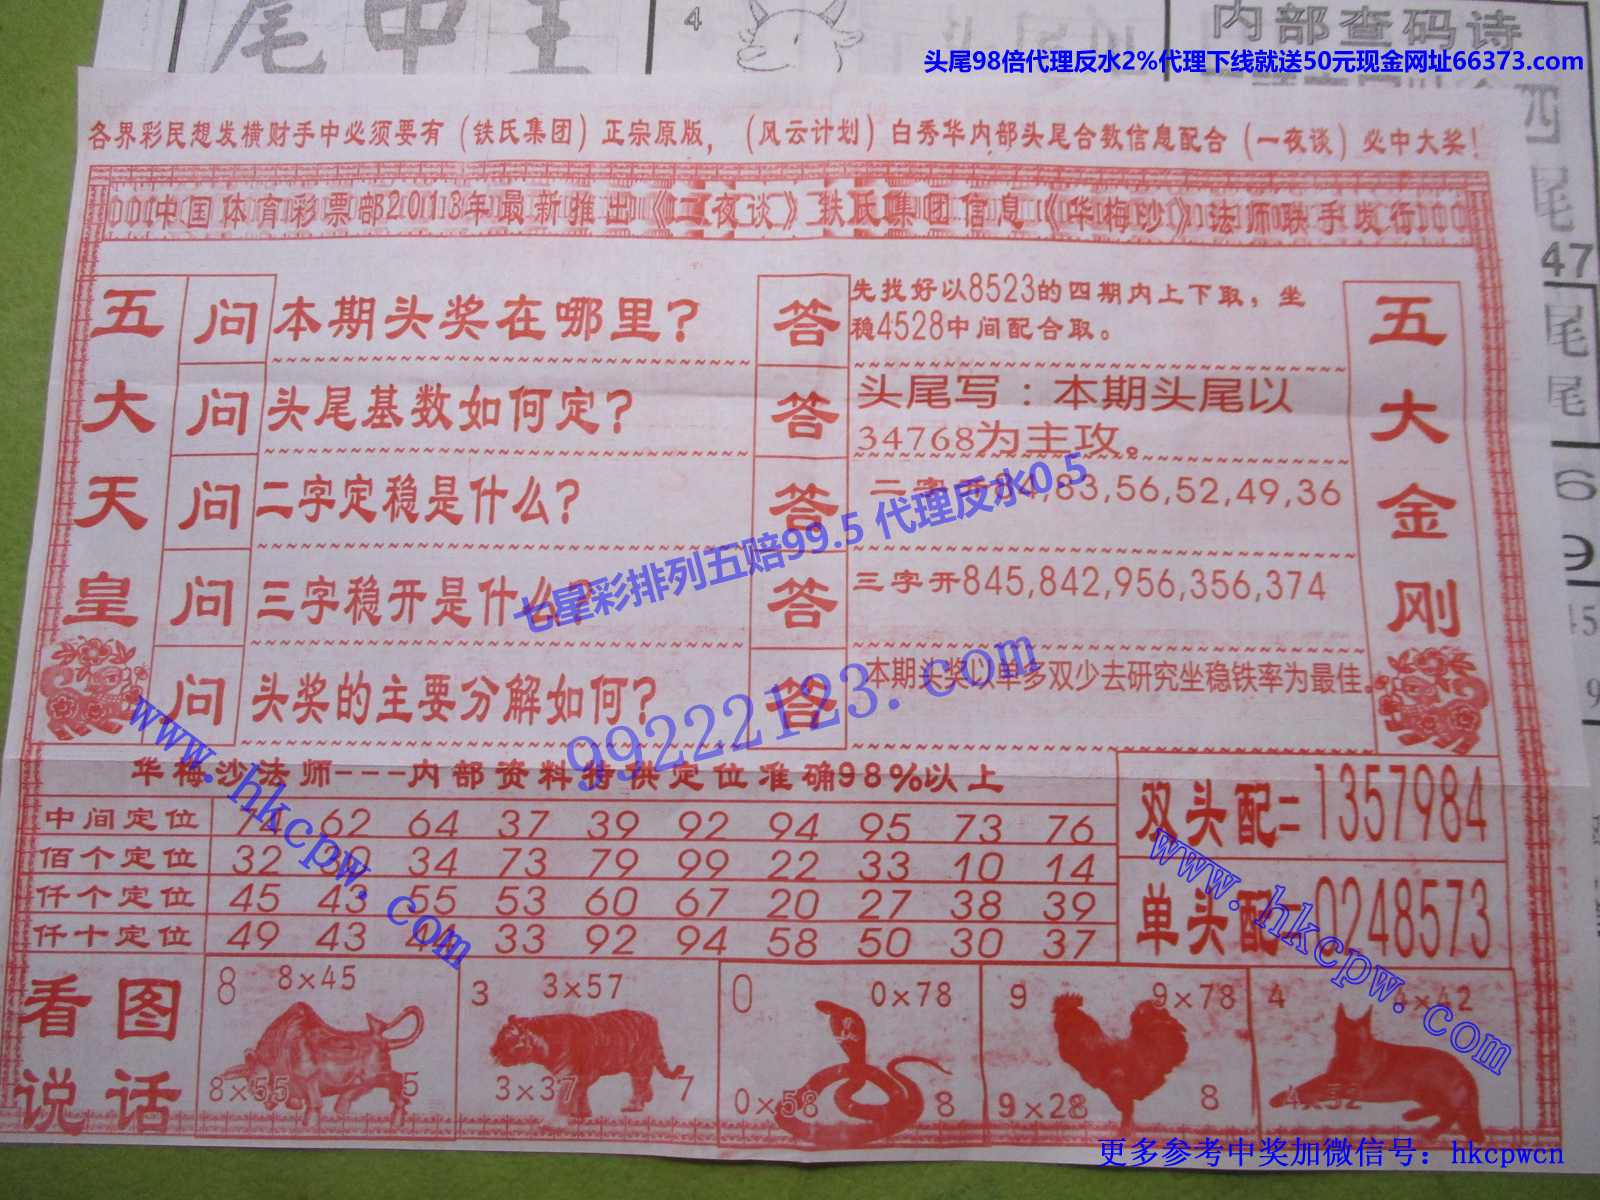 尾中王
4
内部查码诗
头尾98倍代理反水2%代理下线就送50元现金网址66373.com
四
尾
47
尾
尾
6
9
45
9
各界彩民想发横财手中必须要有（铁氏集团）正宗原版，（风云计划）白秀华内部头尾合数信息配合（一夜谈）必中大奖！
中国体育彩票部2013年最新推出《一夜谈》铁氏集团信息《华梅沙》法师联手发行
五大天皇
问 本期头奖在哪里？
答 先找好以8523的四期内上下取，坐
稳4528中间配合取。
问 头尾基数如何定？
答 头尾写：本期头尾以
34768为主攻。
问 二字定稳是什么？
答 二字开84,83,56,52,49,36
问 三字稳开是什么？
答 三字开845,842,956,356,374
问 头奖的主要分解如何？
答 本期头奖以单多双少去研究坐稳铁率为最佳.
五大金刚
七星彩排列五赔99.5 代理反水0.5
99222123.com
www.hkcpw.com
华梅沙法师---内部资料特供定位准确98%以上
中间定位 72 62 64 37 39 92 94 95 73 76
佰个定位 32 30 34 73 79 99 22 33 10 14
仟个定位 45 43 55 53 60 67 20 27 38 39
仟十定位 49 43 44 33 92 94 58 50 30 37
双头配二 1357984
单头配二 0248573
www.hkcpw.com
看图说话
8 8×45
8×55 5
3 3×57
3×37 7
0 0×78
0×58 8
9 9×78
9×28 8
4 4×42
4×52
更多参考中奖加微信号：hkcpwcn